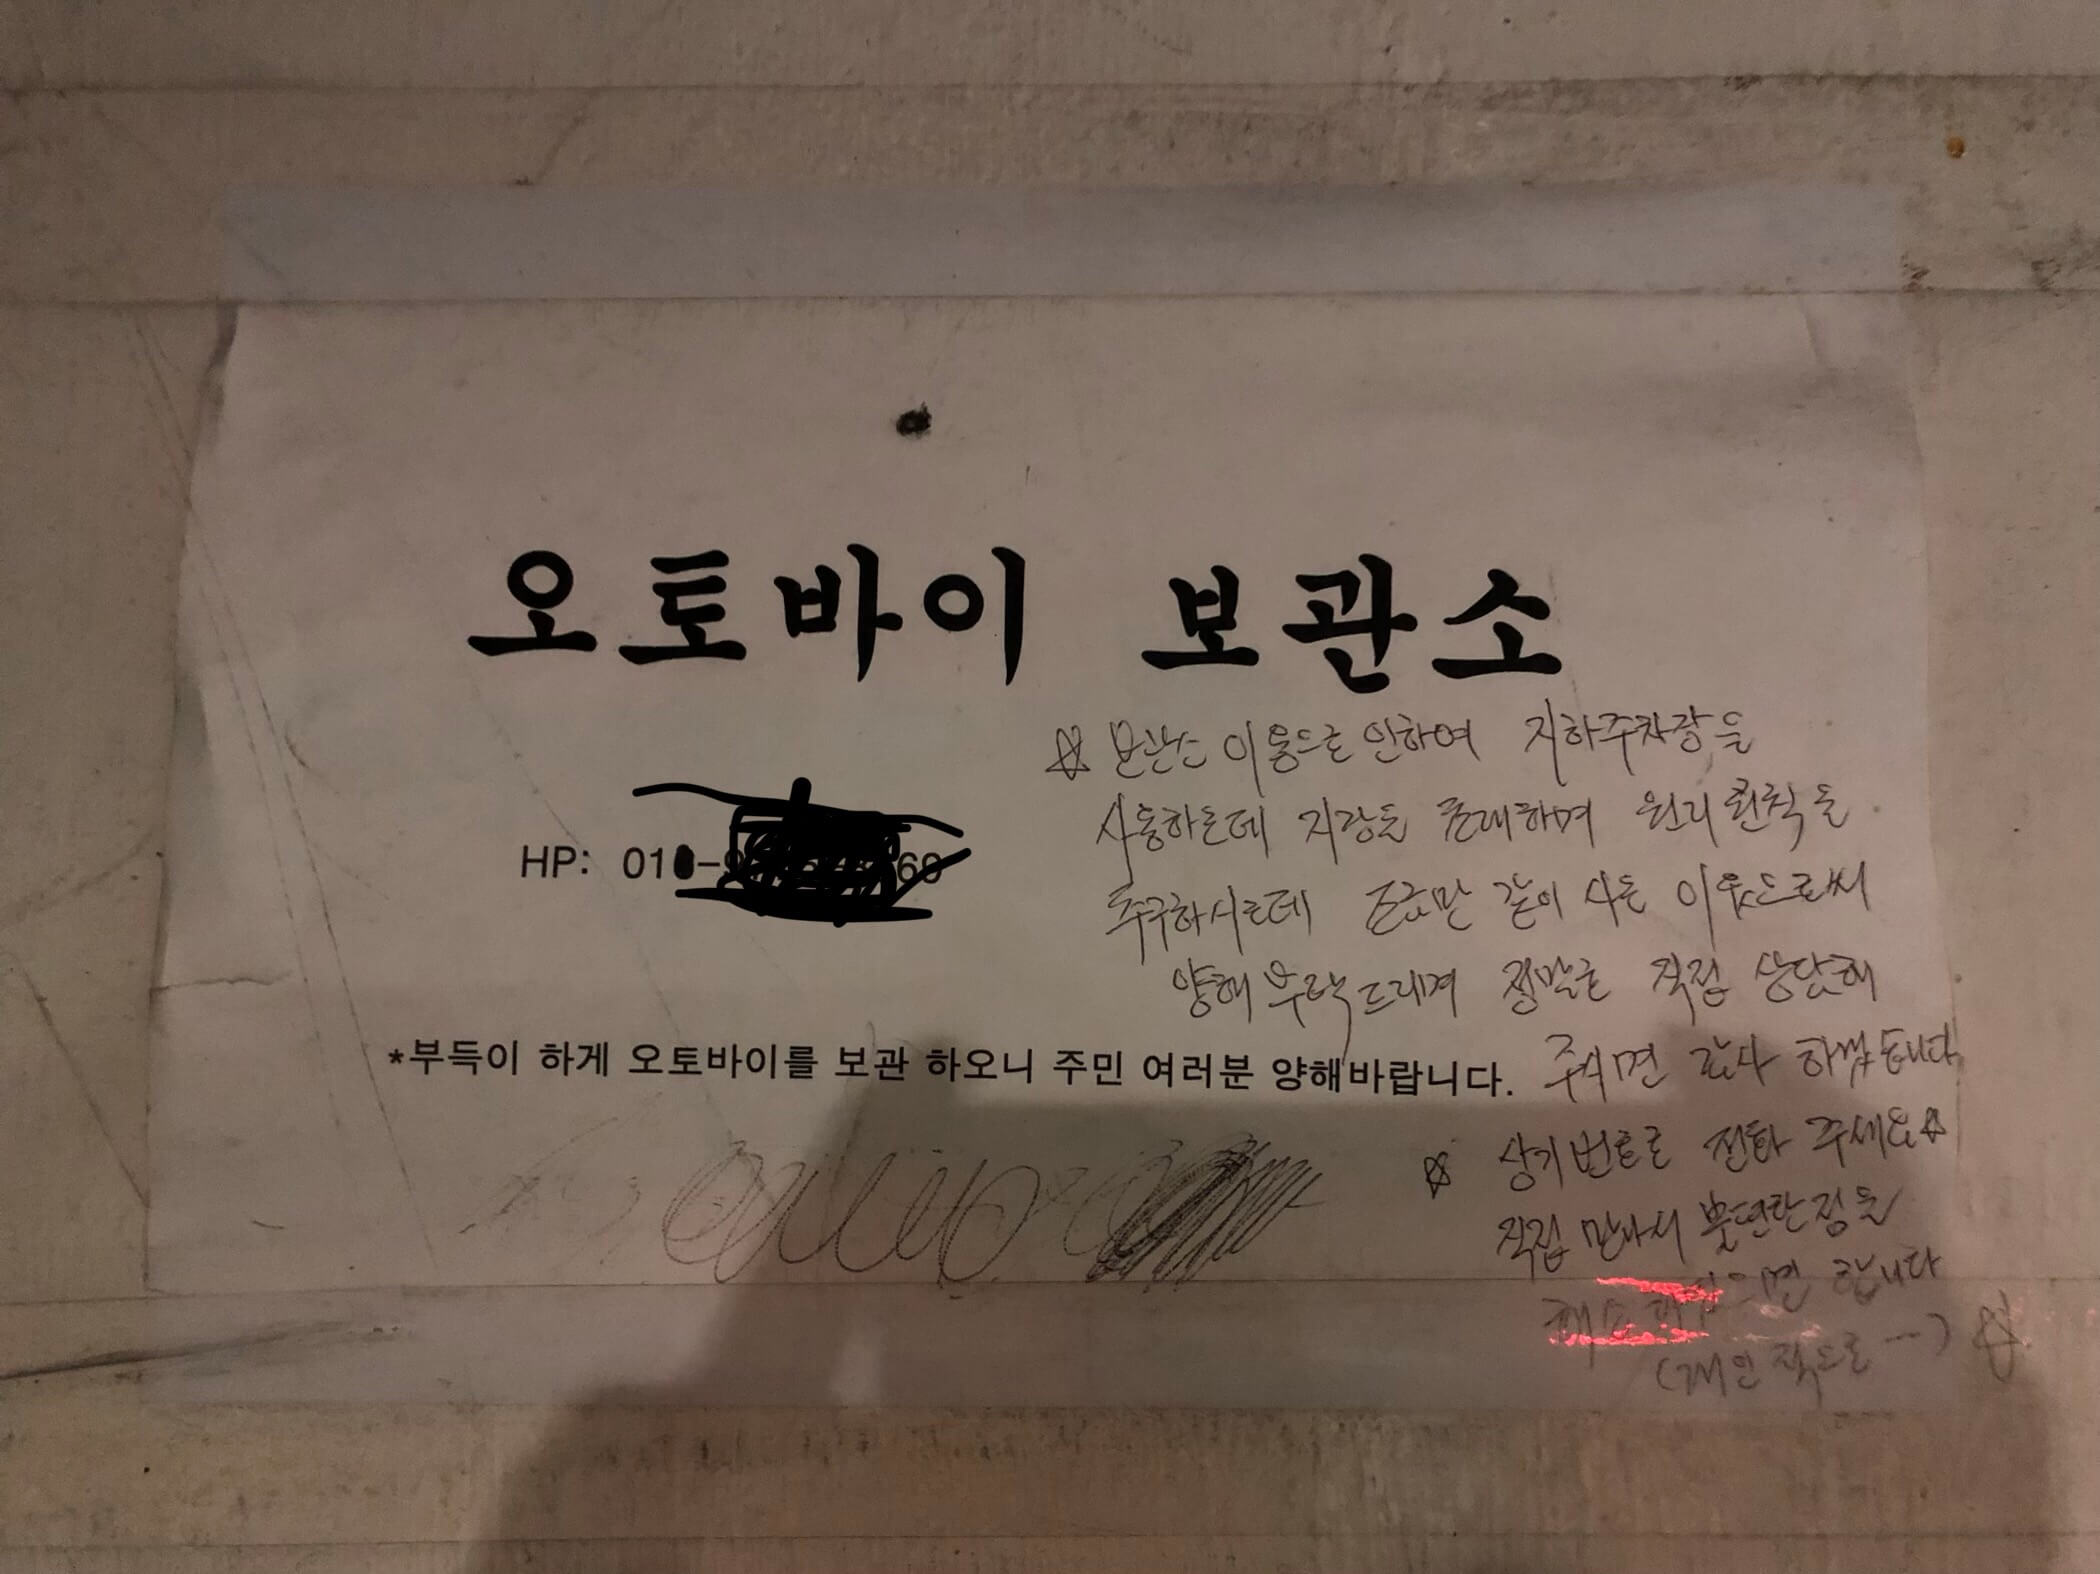 오토바이 보관소
HP: 010-9 60
*부득이 하게 오토바이를 보관 하오니 주민 여러분 양해바랍니다.
☆ 보관소 이용으로 인하여 지하주차장을
사용하는데 지장을 초래하며 원리원칙을
추구하시는데 조금만 같이 사는 이웃으로써
양해 부탁드리며 정말로 직접 상담해
주시면 감사 하겠습니다
☆ 상기번호로 전화 주세요☆
직접 만나서 불편한점을
해소 하였으면 합니다
(개인적으로 ...) ☆